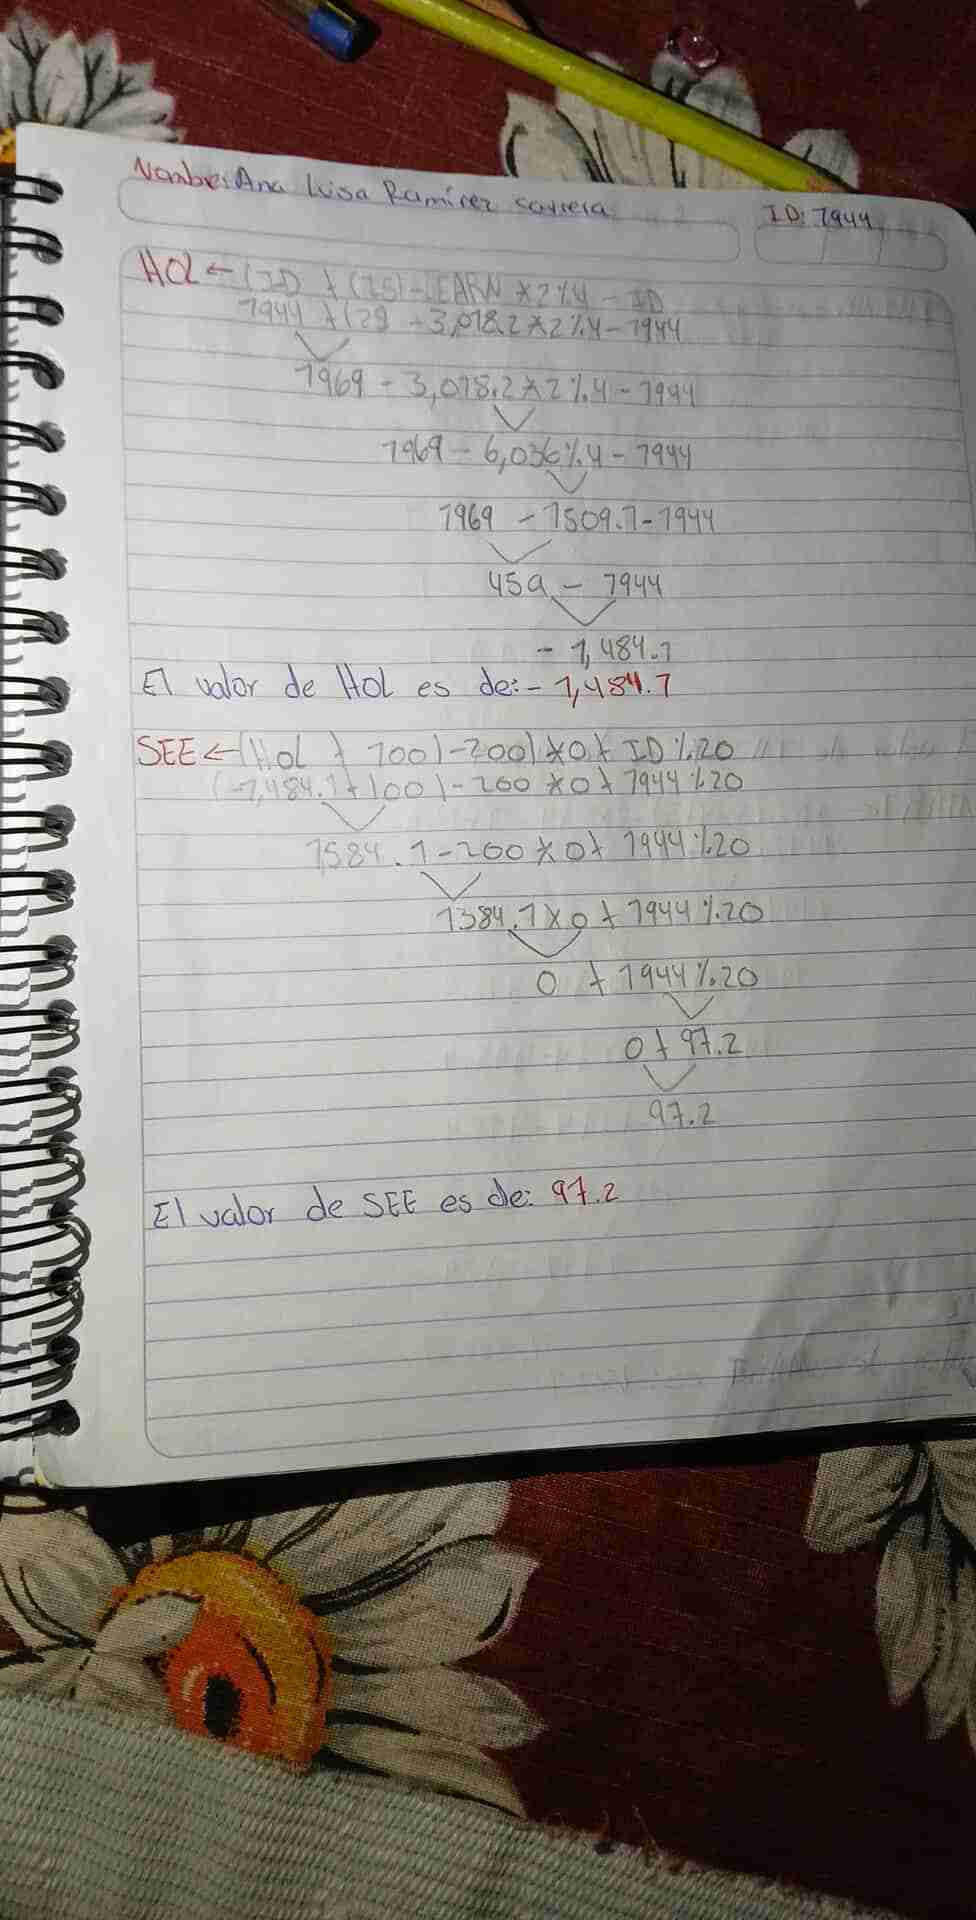 Nombre: Ana Luisa Ramírez
ID: 1944
HOL ← (ID + (25) - LEARN * 2 % 4 - ID
1944 + (25 - 3,018.2 * 2 % 4 - 1944
1969 - 3,018.2 * 2 % 4 - 1944
1969 - 6,036 % 4 - 1944
1969 - 1509.1 - 1944
459 - 1944
- 1,484.1
El valor de HOL es de: - 1,484.1
SEE ← (HOL + 100) - 200) * 0 + ID % 20
(-1,484.1 + 100) - 200 * 0 + 1944 % 20
1584.1 - 200 * 0 + 1944 % 20
1384.1 * 0 + 1944 % 20
0 + 1944 % 20
0 + 97.2
97.2
El valor de SEE es de: 97.2